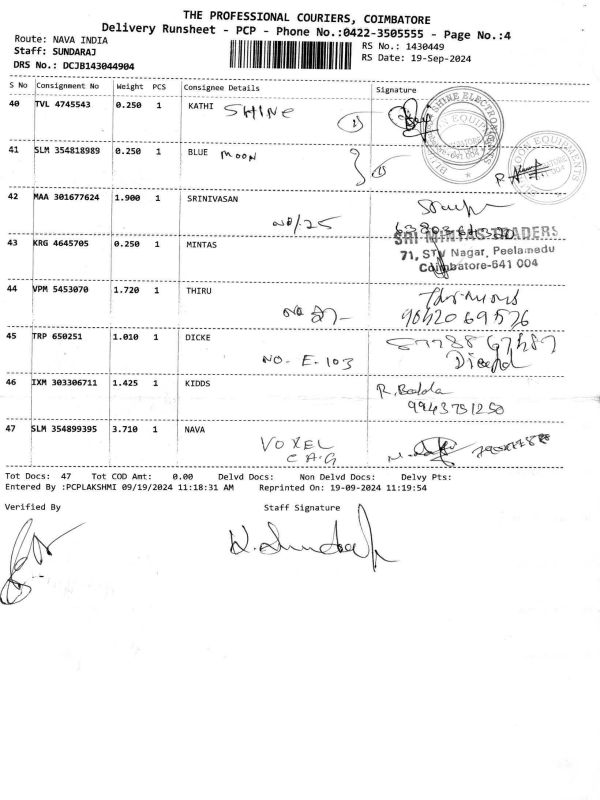 THE PROFESSIONAL COURIERS, COIMBATORE
Delivery Runsheet - PCP - Phone No.:0422-3505555 - Page No.:4
Route: NAVA INDIA
RS No.: 1430449
Staff: SUNDARAJ
RS Date: 19-Sep-2024
DRS No.: DCJB143044904
S No Consignment No Weight PCS Consignee Details Signature
40 TVL 4745543 0.250 1 KATHI SHINE
41 SLM 354818989 0.250 1 BLUE MOON
42 MAA 301677624 1.900 1 SRINIVASAN
NO/25
SRI MINTAS TRADERS
43 KRG 4645705 0.250 1 MINTAS
71, STV Nagar, Peelamedu
Coimbatore-641 004
44 VPM 5453070 1.720 1 THIRU
45 TRP 650251 1.010 1 DICKE
NO. E-103
46 IXM 303306711 1.425 1 KIDDS
9943751250
47 SLM 354899395 3.710 1 NAVA
VOXEL
Tot Docs: 47 Tot COD Amt: 0.00 Delvd Docs: Non Delvd Docs: Delvy Pts:
Entered By :PCPLAKSHMI 09/19/2024 11:18:31 AM Reprinted On: 19-09-2024 11:19:54
Verified By Staff Signature